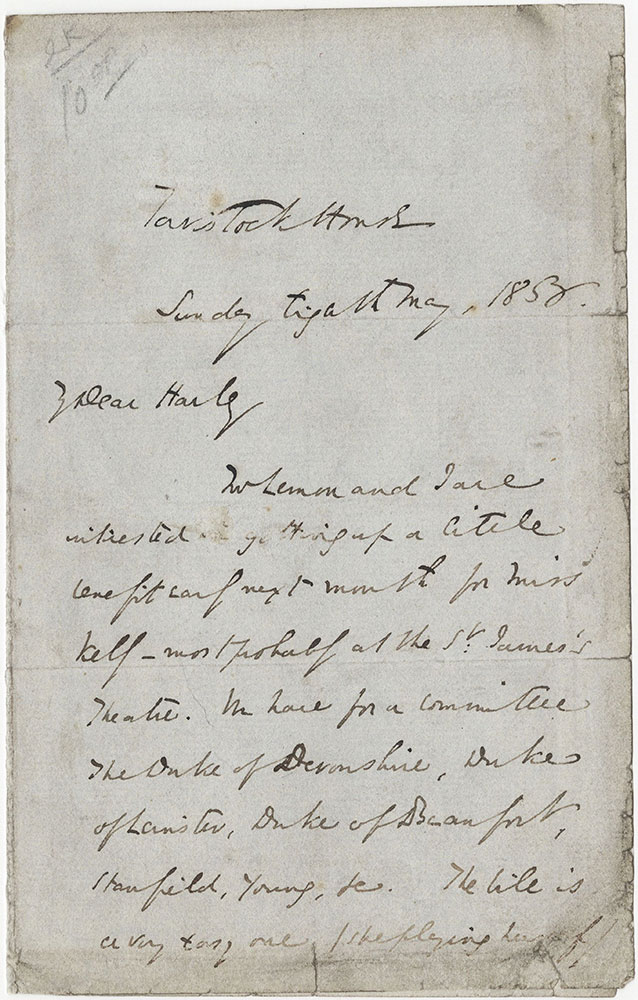 Tavistock House
Sunday Eighth May, 1853.
My Dear Harley
Mr Lemon and I are
interested in getting up a little
benefit early next month for Miss
Kelly - most probably at the St. James's
Theatre. We have for a committee
The Duke of Devonshire, Duke
of Leinster, Duke of Beaufort,
Stanfield, Young, &c. The bill is
a very easy one (she playing herself)